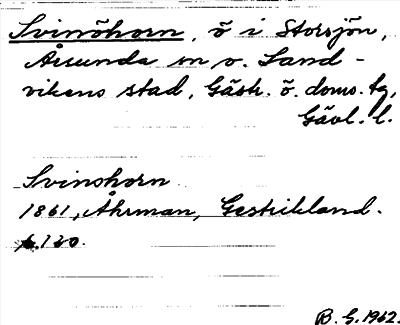 Svinöhorn, ö i Storsjön,
Årsunda sn o. Sand-
vikens stad, Gästr. ö. doms. tg,
Gävl. l.
Svinohorn
1861, Åhrman, Gestrikland.
s. 120.
B. G. 1962.